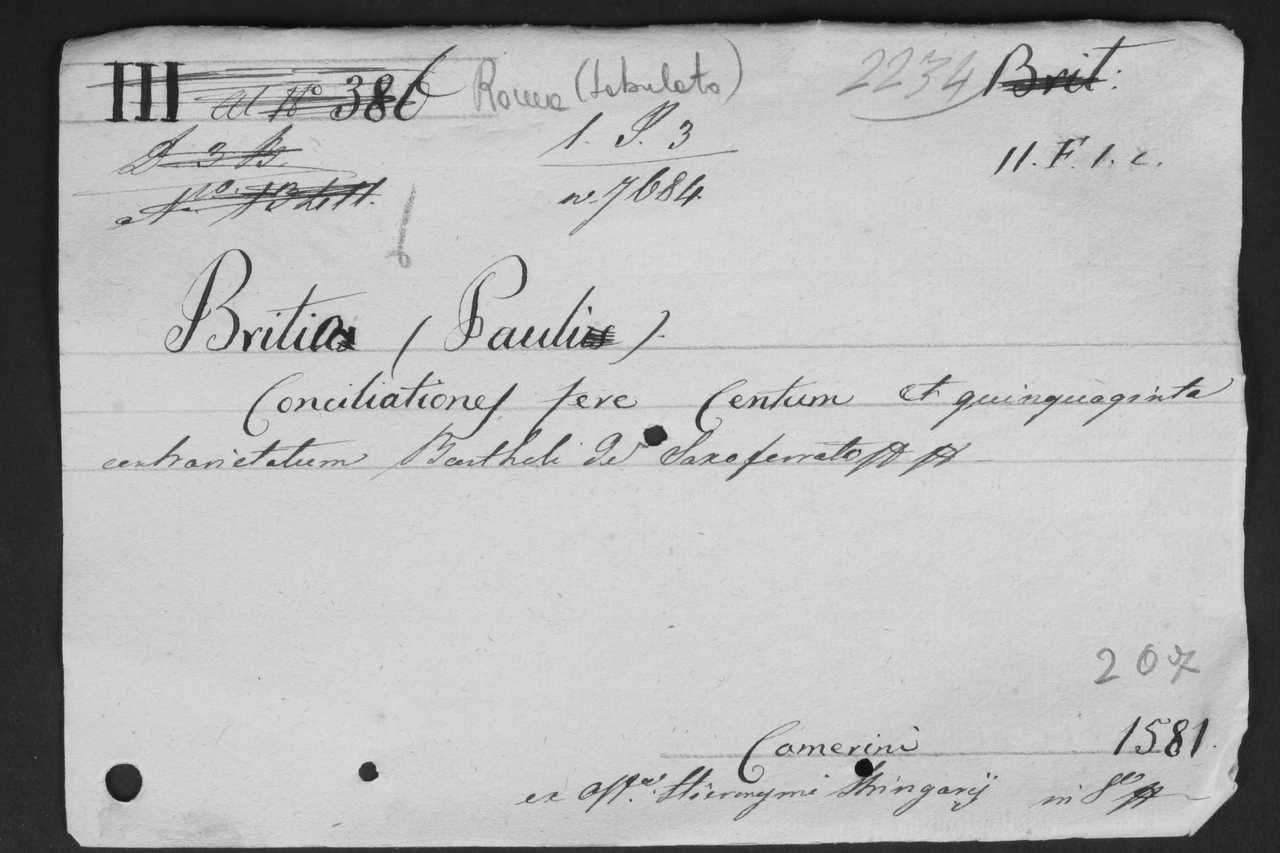 III ad No 386 Roma (tabulato) 2234 Brit:
D 3 B 1. P. 3 11. F. 1. c.
No. 13 n. 7684
Britio (Pauli)
Conciliationes fere Centum et quinquaginta
contrarietatum Bartholi de Saxoferrato
207
Camerini 1581.
ex offna. Hieronymi Stringarij in 8o